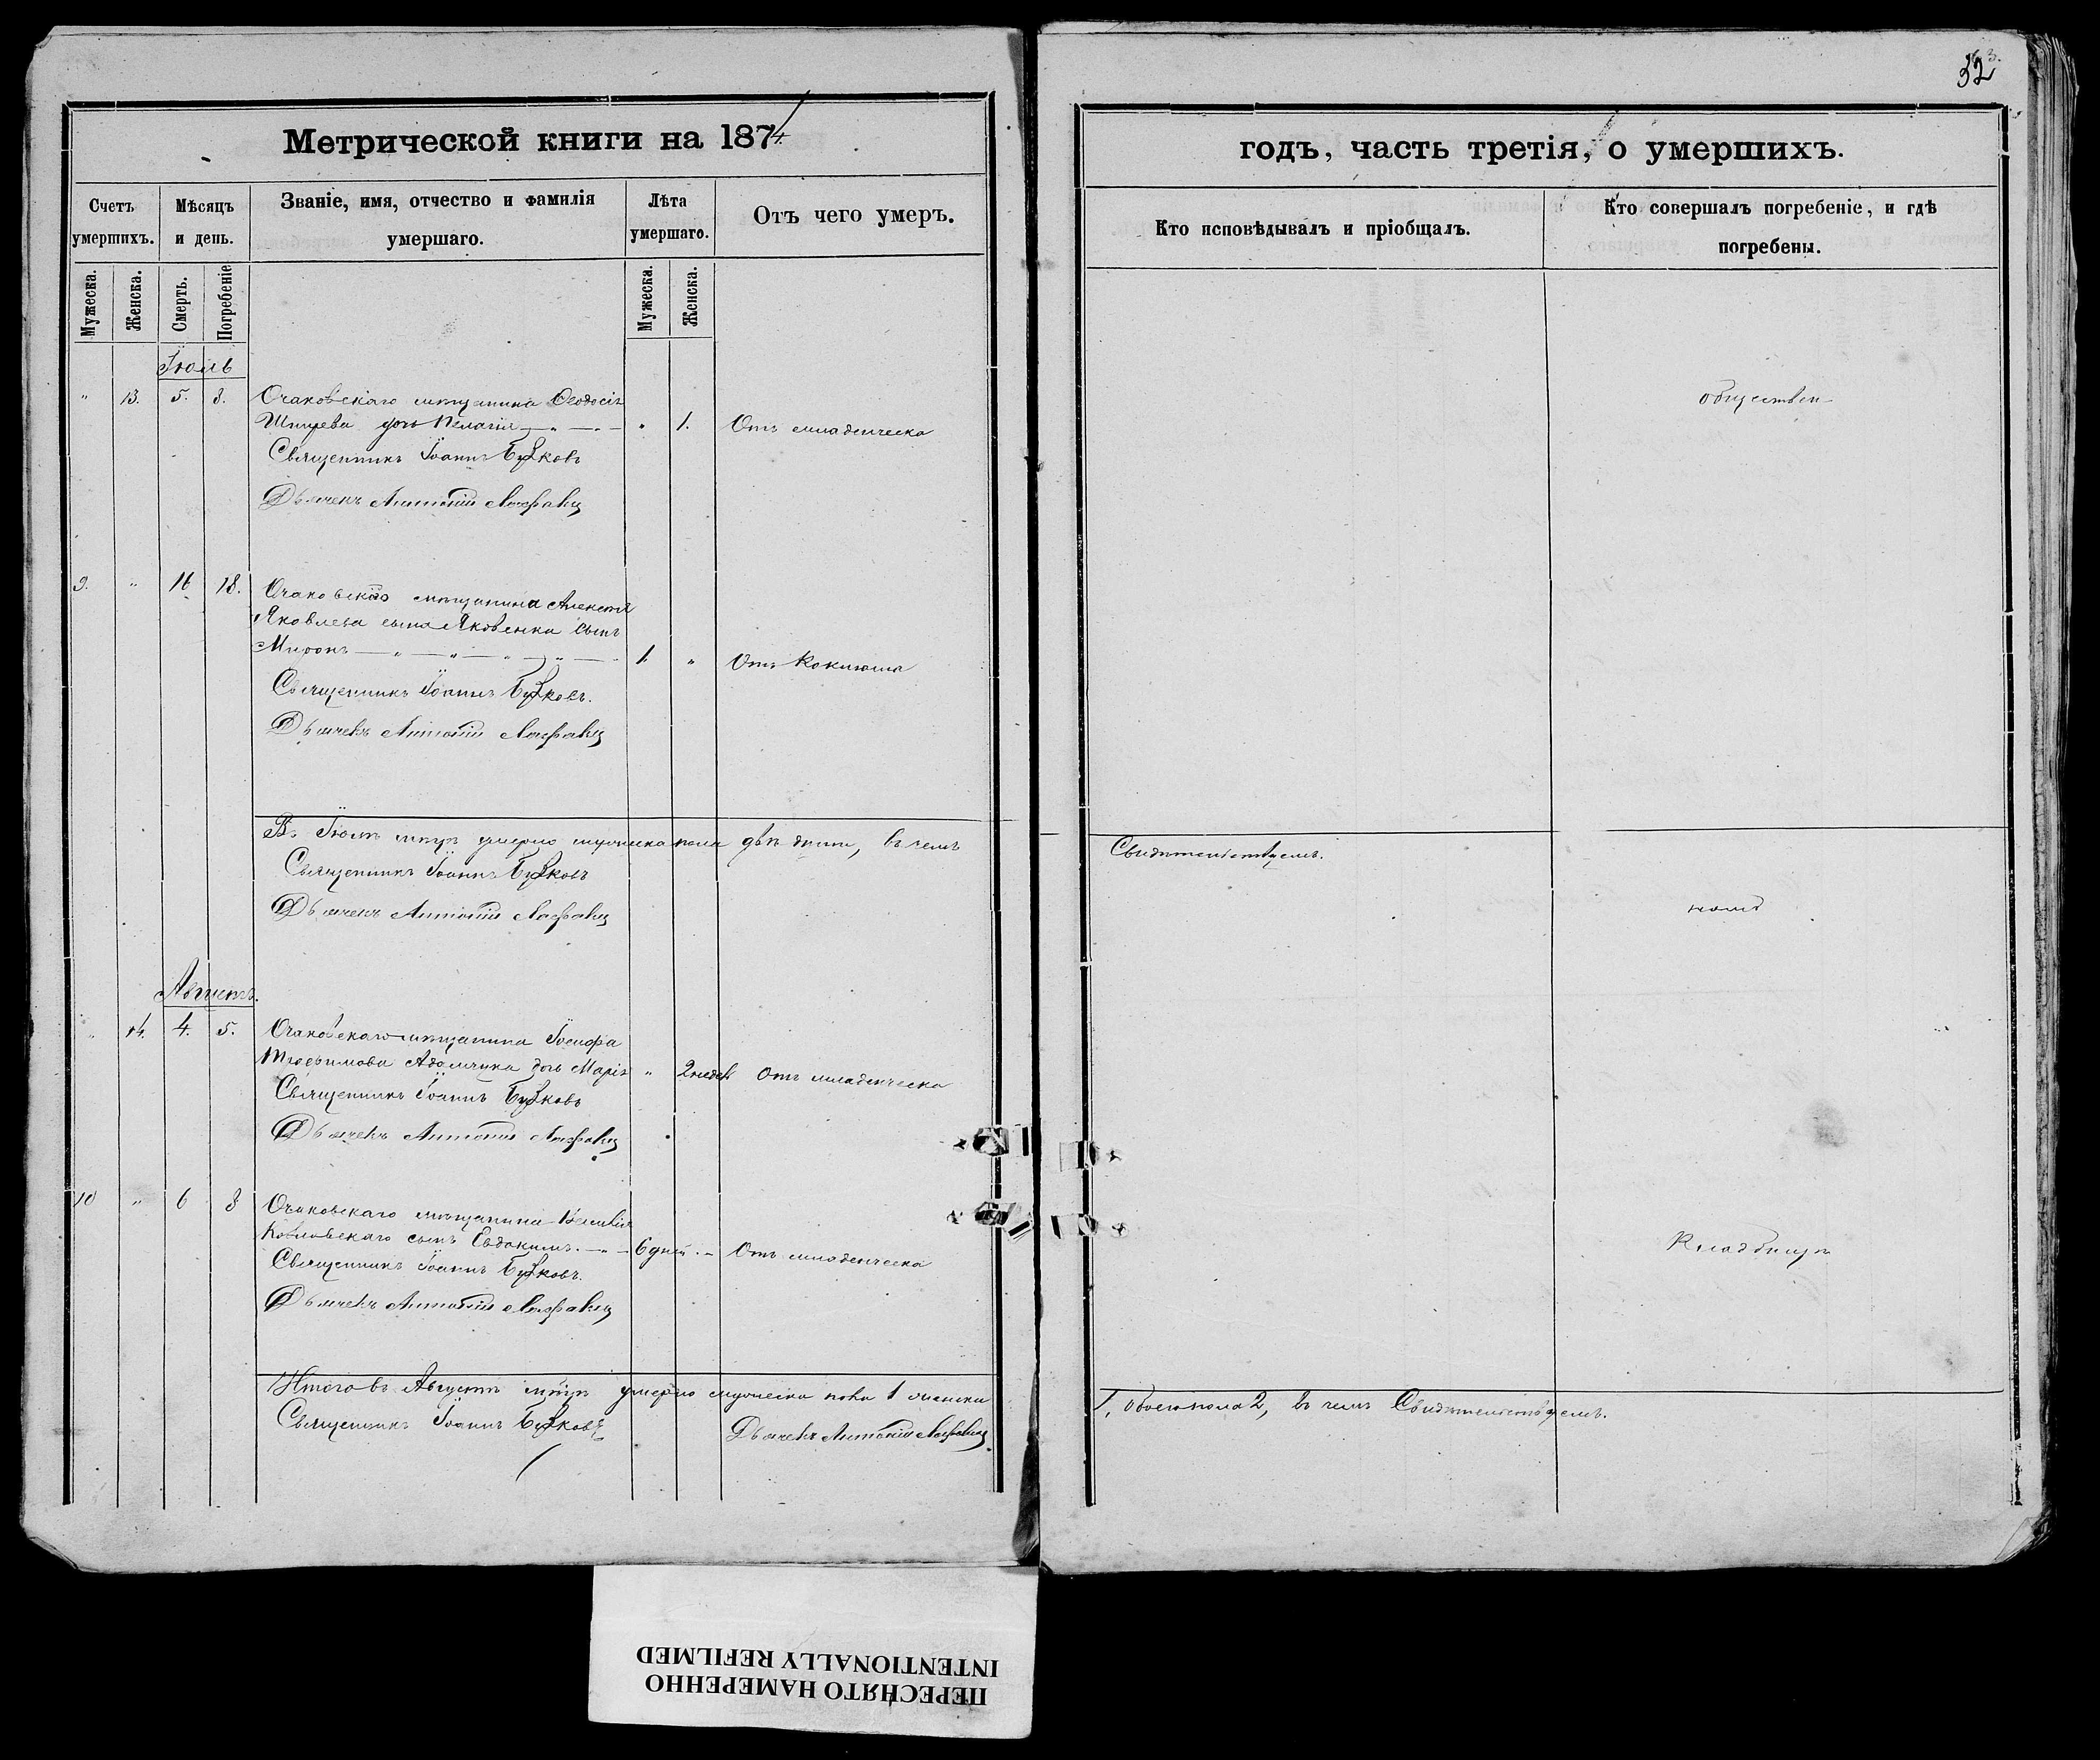 32
Метрической книги на 1874
годъ, часть третія, о умершихъ.
Счетъ умершихъ.
Мѣсяцъ и день.
Званіе, имя, отчество и фамилія умершаго.
Лѣта умершаго.
Отъ чего умеръ.
Кто исповѣдывалъ и пріобщалъ.
Кто совершалъ погребеніе, и гдѣ погребены.
Мужеска. Женска. Смерть. Погребеніе Мужеска. Женска.
Іюль
" 13. 5. 8. Очаковскаго мѣщанина Ѳеодосія
дочь Пелагія " 1. Отъ младенческа
обществен-
Священникъ Іоаннъ
Дьячекъ Антоній
9. " 16 18. Очаковскаго мѣщанина Алексѣя
Яковлева сына Яковенка сынъ
Миронъ 1. " Отъ Коклюша
Священникъ Іоаннъ
Дьячекъ Антоній
Въ Іюлѣ мѣсяцѣ умерло мужеска пола въ чемъ
Свидѣтельствуемъ.
Священникъ Іоаннъ
Дьячекъ Антоній
номъ
Августъ.
" 14. 4. 5. Очаковскаго мѣщанина Іосифа
Трофимова Адамчука дочь Марія " 2 недѣл. Отъ младенческа
Священникъ Іоаннъ
Дьячекъ Антоній
10 " 6 8 Очаковскаго мѣщанина Василія
Козловскаго сынъ Евдокимъ. 6 дней. Отъ младенческа
Кладбищѣ
Священникъ Іоаннъ
Дьячекъ Антоній
Итого въ Августѣ мѣсяцѣ умерло мужеска пола 1 женска
1, обоего пола 2, въ чемъ Свидѣтельствуемъ.
Священникъ Іоаннъ
Дьячекъ Антоній
ПЕРЕСНЯТО НАМЕРЕННО
INTENTIONALLY REFILMED